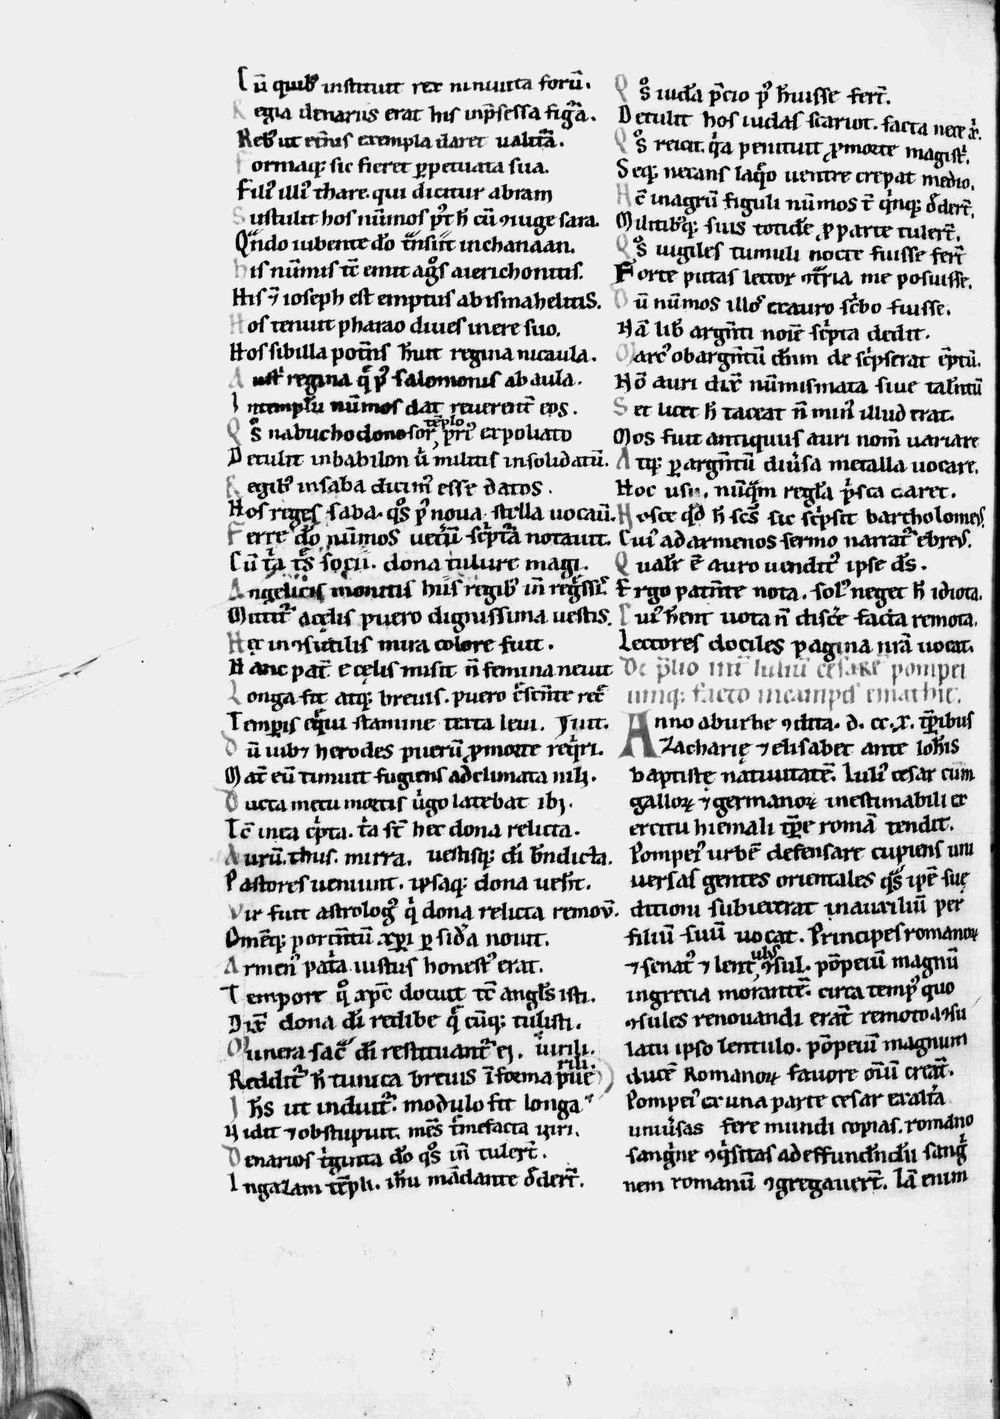 Cū quibꝰ instituit rex niniuita forū.
Regia denariis erat his inp̄sessa figᷓa.
Rebꝰ ut et̄nis exempla daret ualitᷓa.
Formaqꝫ sic fieret ꝑpetuata sua.
Filiꝰ illiꝰ thare. qui dicitur abram
Sustulit hos nūmos pꝰt h̄ cū ꝯiuge sara.
Qn̄do iubente dō tn̄siit in chanaan.
His nūmis tē emit agꝰs a ierichontis.
His ⁊ ioseph est emptus ab ismahelitis.
Hos tenuit pharao diues in ere suo.
Hos sibilla potēns h̄uit regina nicaula.
Austⁱ regina q̄ pꝰ salomonis ab aula.
In templū nūmos dat reuerent̄ eos.
Qꝰs nabuchodonosor templo pⁱꝰ expoliato
Detulit in babilon ū militis in solidatū.
Regibꝰ in saba dicimꝰ esse datos.
Hos reges saba. qꝰs pꝰ noua stella uocaū.
Ferre dō nūmos uetꝰū scⁱptᷓa notauit.
Cū tᷓa tꝰs socii. dona tulere magi.
Angelicis monitis hiis regibꝰ in̄ regssiꝰ.
Mittitꝰ a celis puero dignissima uestis.
Hec inꝯsutilis mira colore fuit.
Hanc patꝰ e celis misit n̄ femina neuit
Longa fit atqꝫ breuis. puero c̄scente rec̄
Temporis exⁱgui stamine texta leui. fuit.
Dū iubꝫ herodes puerū ꝑ morte reqⁱri.
Mat̄ eū timuit fugiens ad climata nili.
Ducta metu mortis uⁱgo latebat ibi.
Tc̄ in ea cⁱpta. tᷓa st̄ hec dona relicta.
Aurū. thus. mirra. uestisqꝫ dī bn̄dicta.
Pastores ueniunt. ipsaqꝫ dona uehūt.
Vir fuit astrologꝰ qⁱ dona relicta remouꝫ.
Omeqꝫ portentū xp̄i ꝑ sidᷓa nouit.
Armeniꝰ patⁱa. iustus honestꝰ erat.
Tempore qꝰ xp̄c docuit tē angls isti.
Dix̄ dona dī redibe q̄ cūqꝫ tulisti.
Munera sac̄ dī restituantꝰ ei. uirili.
Redditꝰ h̄ tunica breuis ī forma puerili.
Ihs ut induitꝰ. modulo fit longa
Vidit ⁊ obstupuit. mēs tⁱmefacta uiri.
Denarios tⁱginta dō qꝰs in̄ tulert̄.
In galam tēpli. ihū mādante ꝺdert̄.
Qꝰs iudᷓa p̄cio pꝰ h̄uisse fert̄.
Detulit hos iudas scariot. facta nece xⁱ.
Qꝰs reicit. qᷓa penituit ꝓ morte magistⁱ.
Seqꝫ necans laqꝰo uentre crepat medio.
Hc̄ in agrū figuli nūmos tē qⁱnqꝫ ꝺdert̄.
Militibꝰqꝫ suis totidē ꝓ parte tulert̄.
Qꝰs uigiles tumuli nocte fuisse fert̄
Forte putas lector ꝯtᷓria me posuisse.
Dū nūmos illoꝰ ex auro scⁱbo fuisse.
Nā libꝰ argn̄ti noīe scⁱpta dedit.
Marcꝰ ob argn̄tū dn̄m de scⁱpserat ēptū.
Nō auri dix̄ nūmismata siue talentū
Set licet h̄ taceat n̄ minꝰ illud erat.
Mos fuit antiquus auri nom̄ uariare
Atqꝫ ꝑ argn̄tū diūsa metalla uocare.
Hoc usu. nūqᷓm regla pⁱsca caret.
Hosce qd̄ h̄ scs̄ sic scⁱpsit bartholomeꝰ.
Cuiꝰ ad armenos sermo narratꝰ ebreꝰ.
Qualr̄ ē auro uenditꝰ ipse ds̄.
Ergo patente nota. solꝰ neget h̄ idiota.
Cuiꝰ hent̄ uota n̄ discē facta remota.
Lectores dociles pagina nrā uocat.
De p̄lio int̄ iuliū cesarē pompei
umqꝫ facto in campis emathie.
Anno ab urbe ꝯdita. d. cc. x. tp̄ribus
Zacharię ⁊ elisabet ante Iohīs
baptistę natiuitatē. Iuliꝰ cesar cum
galloꝝ ⁊ germanoꝝ inestimabili ex
ercitu hiemali tp̄re romā tendit.
Pompeiꝰ urbē defensare cupiens uni
uersas gentes orientales qᷓs ipē suę
ditioni subiecerat in auxiliū per
filiū suū uocat. Principes romanoꝝ
⁊ senatꝰ ⁊ lentulꝰ ꝯsul. pōpeiū magnū
in grecia morantē. circa tempꝰ quo
ꝯsules renouandi erāt remoto a ꝯsu
latu ipso lentulo. pōpeiū magnum
ducē Romanoꝝ fauore oīū creāt.
Pompeiꝰ ex una parte cesar ex altᷓa
uniūsas fere mundi copias. romano
sangⁱne ꝯqⁱsitas ad effundendū sangⁱ
nem romanū ꝯgregauert̄. Iā enim